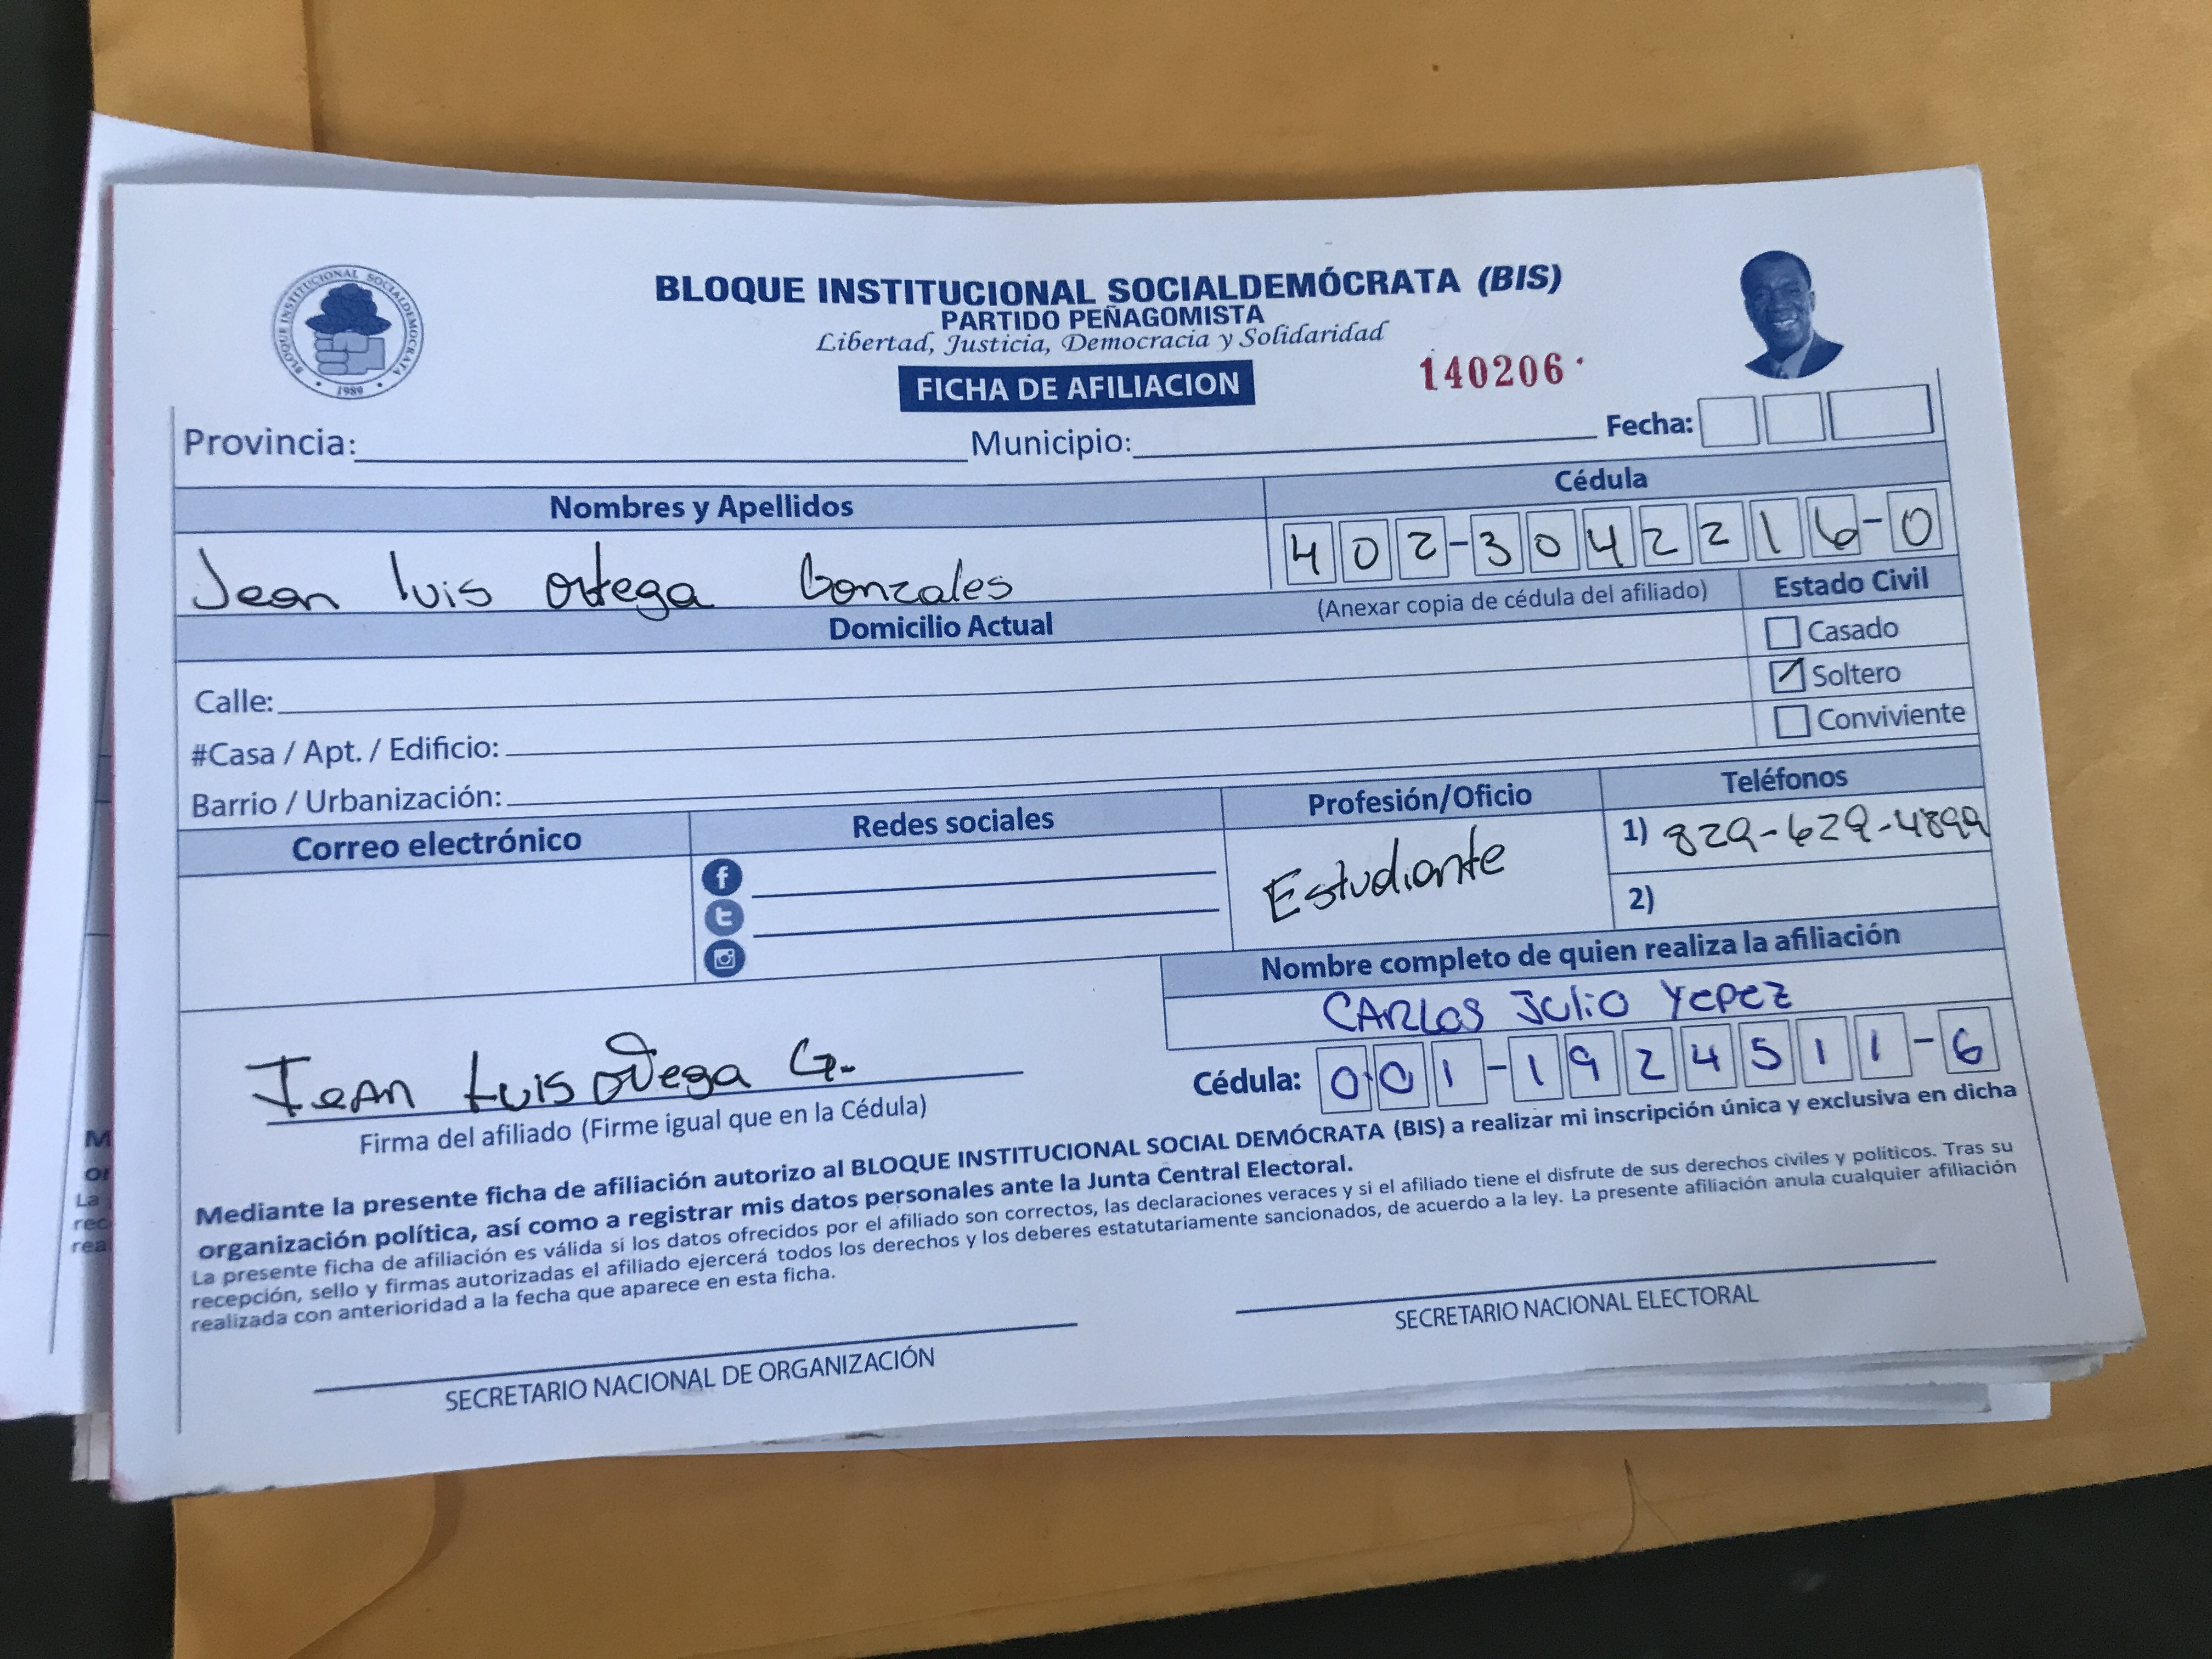 BLOQUE INSTITUCIONAL SOCIALDEMOCRATA
1989
BLOQUE INSTITUCIONAL SOCIALDEMÓCRATA (BIS)
PARTIDO PEÑAGOMISTA
Libertad, Justicia, Democracia y Solidaridad
FICHA DE AFILIACION
140206
Provincia: Municipio: Fecha:
Nombres y Apellidos Cédula
Jean luis ortega Gonzales 402-3042216-0
(Anexar copia de cédula del afiliado)
Domicilio Actual Estado Civil
Casado
Calle: Soltero
#Casa / Apt. / Edificio: Conviviente
Barrio / Urbanización:
Correo electrónico Redes sociales Profesión/Oficio Teléfonos
Estudiante 1) 829-629-4899
2)
Nombre completo de quien realiza la afiliación
CARLOS JULIO YEPEZ
Jean Luis Ortega G. Cédula: 001-1924511-6
Firma del afiliado (Firme igual que en la Cédula)
Mediante la presente ficha de afiliación autorizo al BLOQUE INSTITUCIONAL SOCIAL DEMÓCRATA (BIS) a realizar mi inscripción única y exclusiva en dicha
organización política, así como a registrar mis datos personales ante la Junta Central Electoral.
La presente ficha de afiliación es válida si los datos ofrecidos por el afiliado son correctos, las declaraciones veraces y si el afiliado tiene el disfrute de sus derechos civiles y políticos. Tras su
recepción, sello y firmas autorizadas el afiliado ejercerá todos los derechos y los deberes estatutariamente sancionados, de acuerdo a la ley. La presente afiliación anula cualquier afiliación
realizada con anterioridad a la fecha que aparece en esta ficha.
SECRETARIO NACIONAL DE ORGANIZACIÓN SECRETARIO NACIONAL ELECTORAL